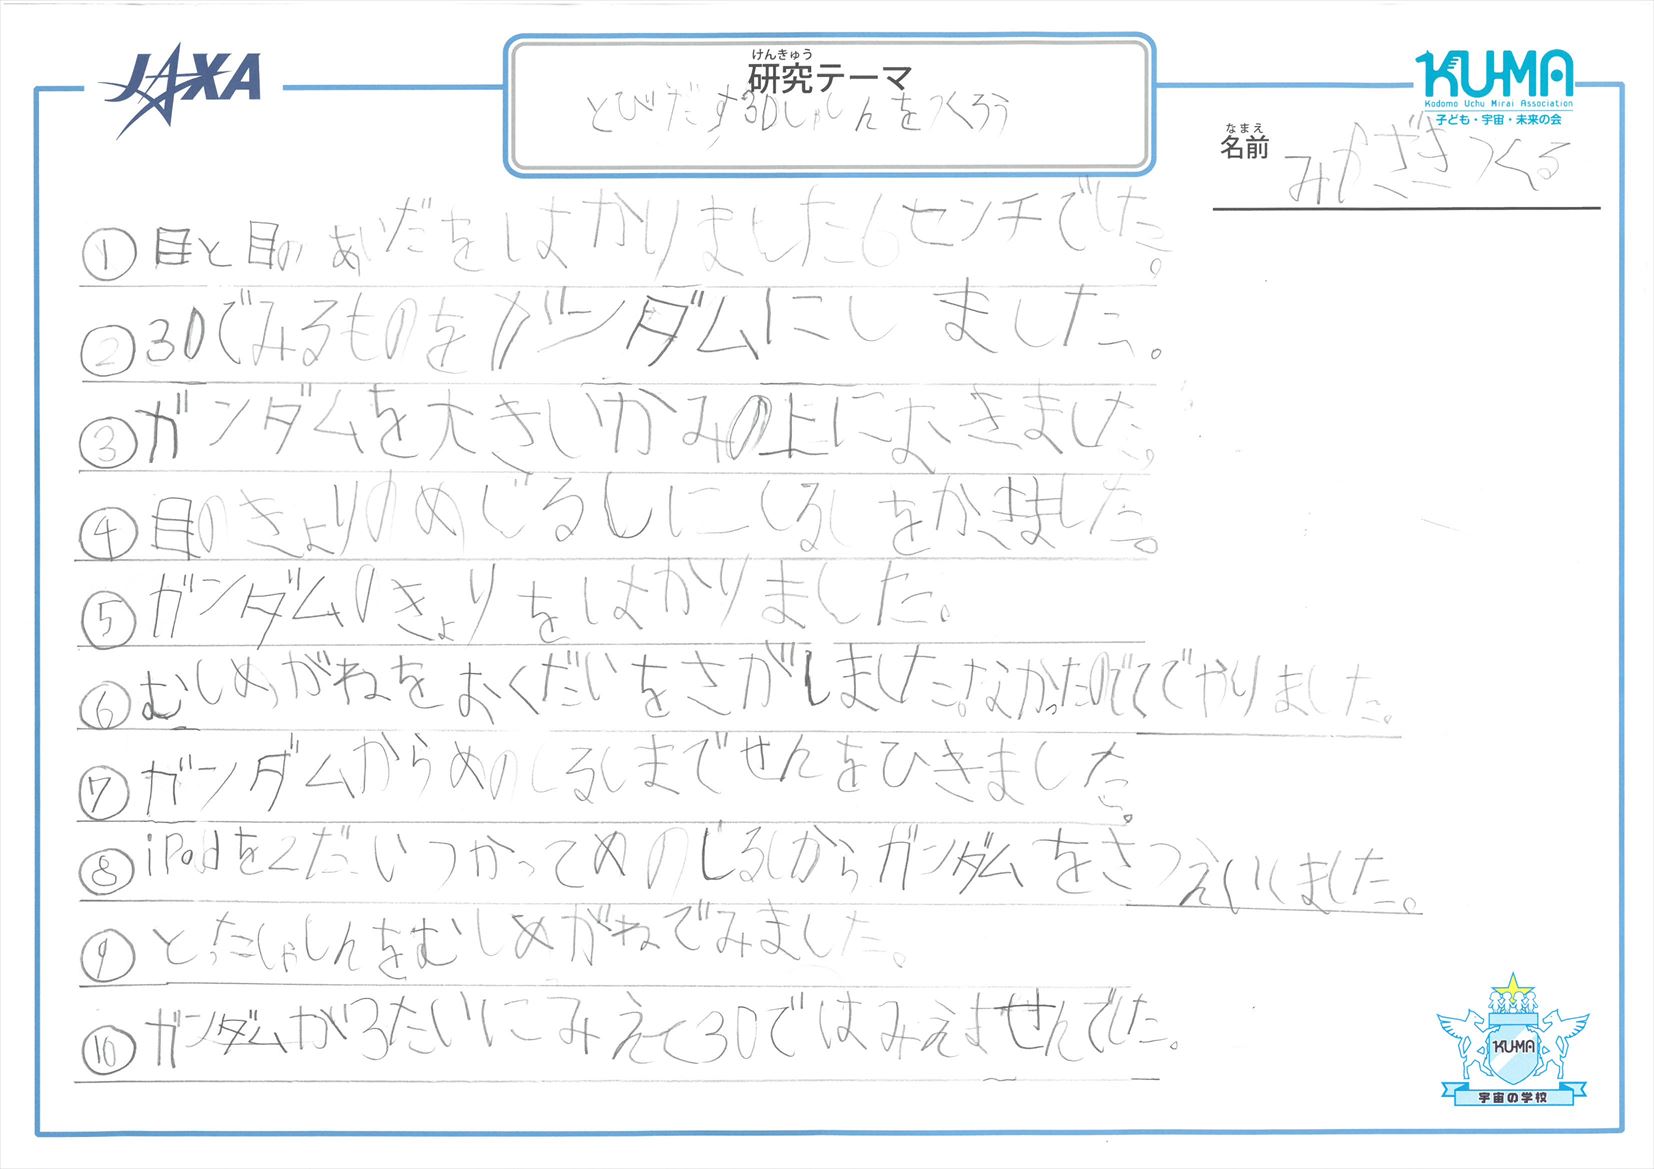 JAXA
けんきゅう
研究テーマ
とびだす3Dしゃしんをつくろう
KUMA
Kodomo Uchu Mirai Association
子ども・宇宙・未来の会
なまえ
名前 みかざきつくる
① 目と目のあいだをはかりました6センチでした。
② 3Dでみるものをガンダムにしました。
③ ガンダムを大きいかみの上におきました。
④ 目のきょりのめじるしにしるしをかきました。
⑤ ガンダムのきょりをはかりました。
⑥ むしめがねをおくだいをさがしました。なかったのでてでやりました。
⑦ ガンダムからめのしるしまでせんをひきました。
⑧ iPodを2だいつかってめのじるしからガンダムをさつえいしました。
⑨ とったしゃしんをむしめがねでみました。
⑩ ガンダムが3たいにみえて3Dではみえませんでした。
KUMA
宇宙の学校